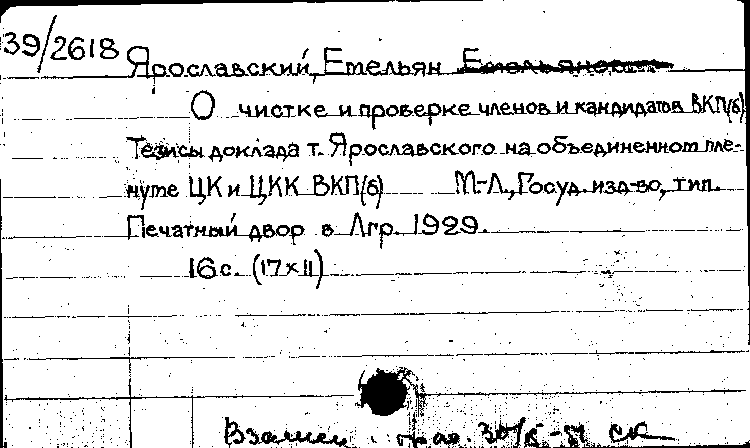 39/2618 Ярославский, Емельян
О чистке и проверке членов и кандидатов ВКП(б)
Тезисы доклада т. Ярославского на объединенном пле-
нуме ЦК и ЦКК ВКП(б) М.-Л., Госуд. изд-во, тип.
Печатный двор в Лгр. 1929.
16 с. (17×11)
Взамен